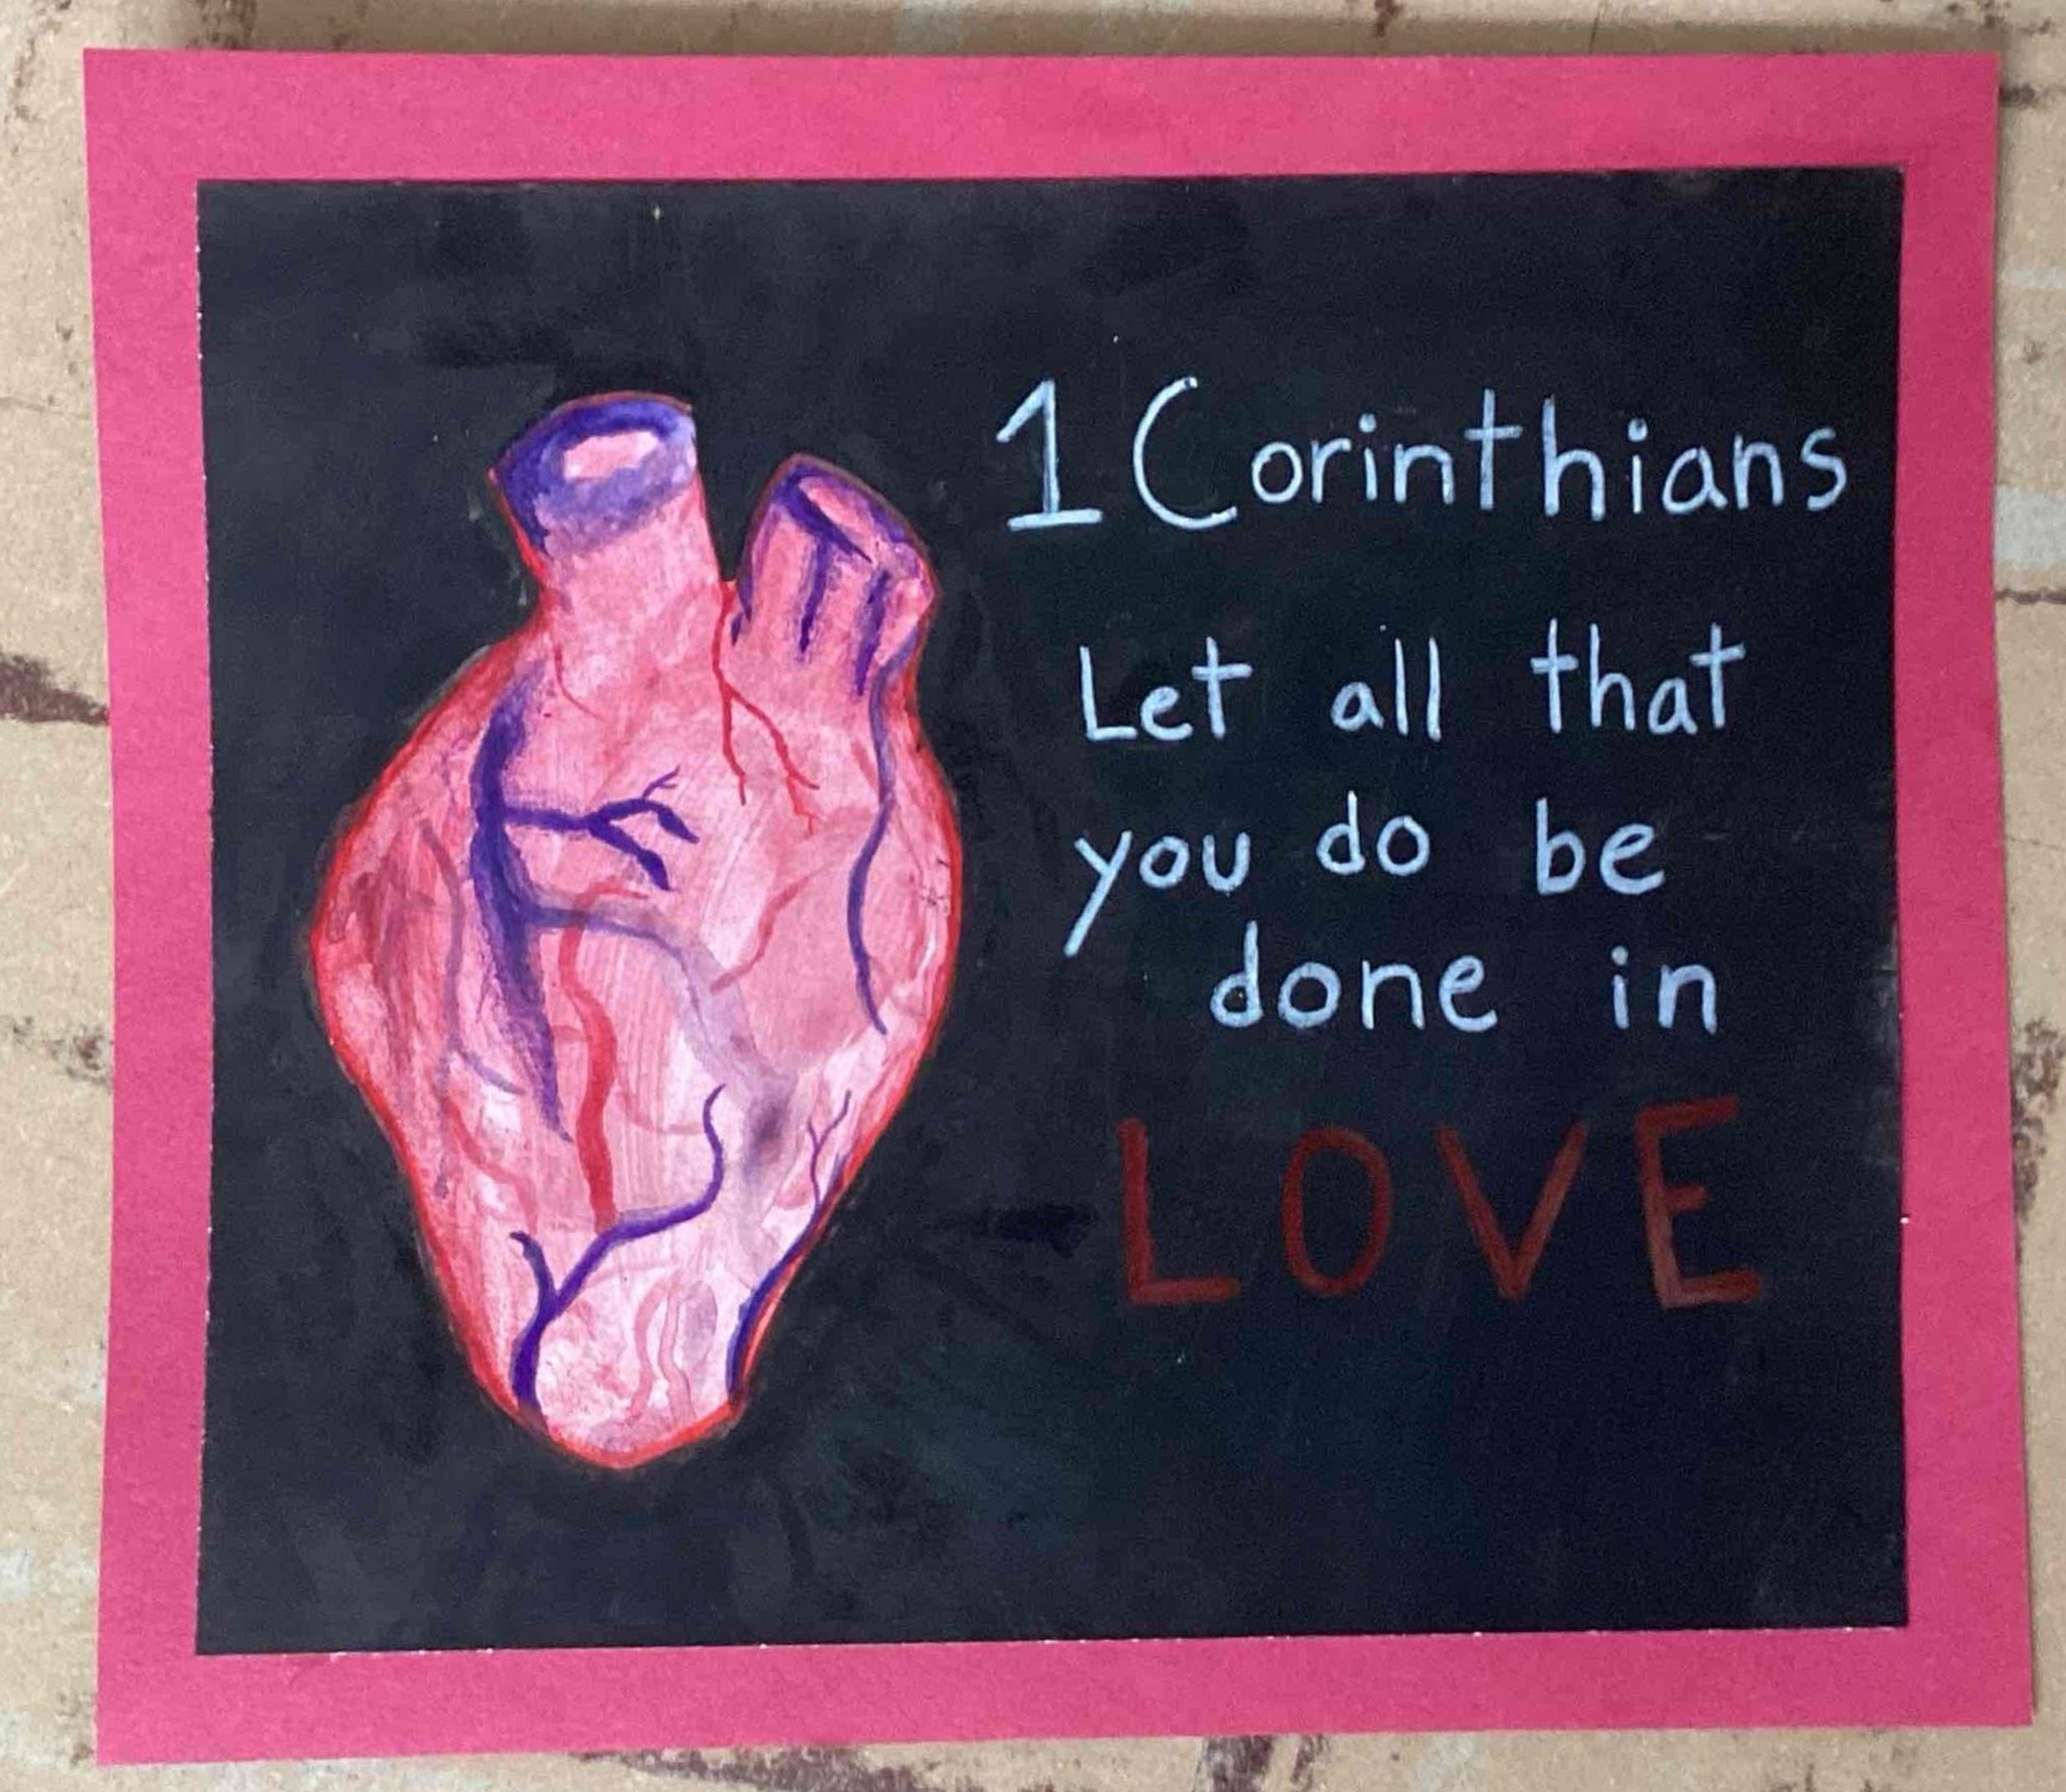 1 Corinthians
Let all that
you do be
done in
LOVE